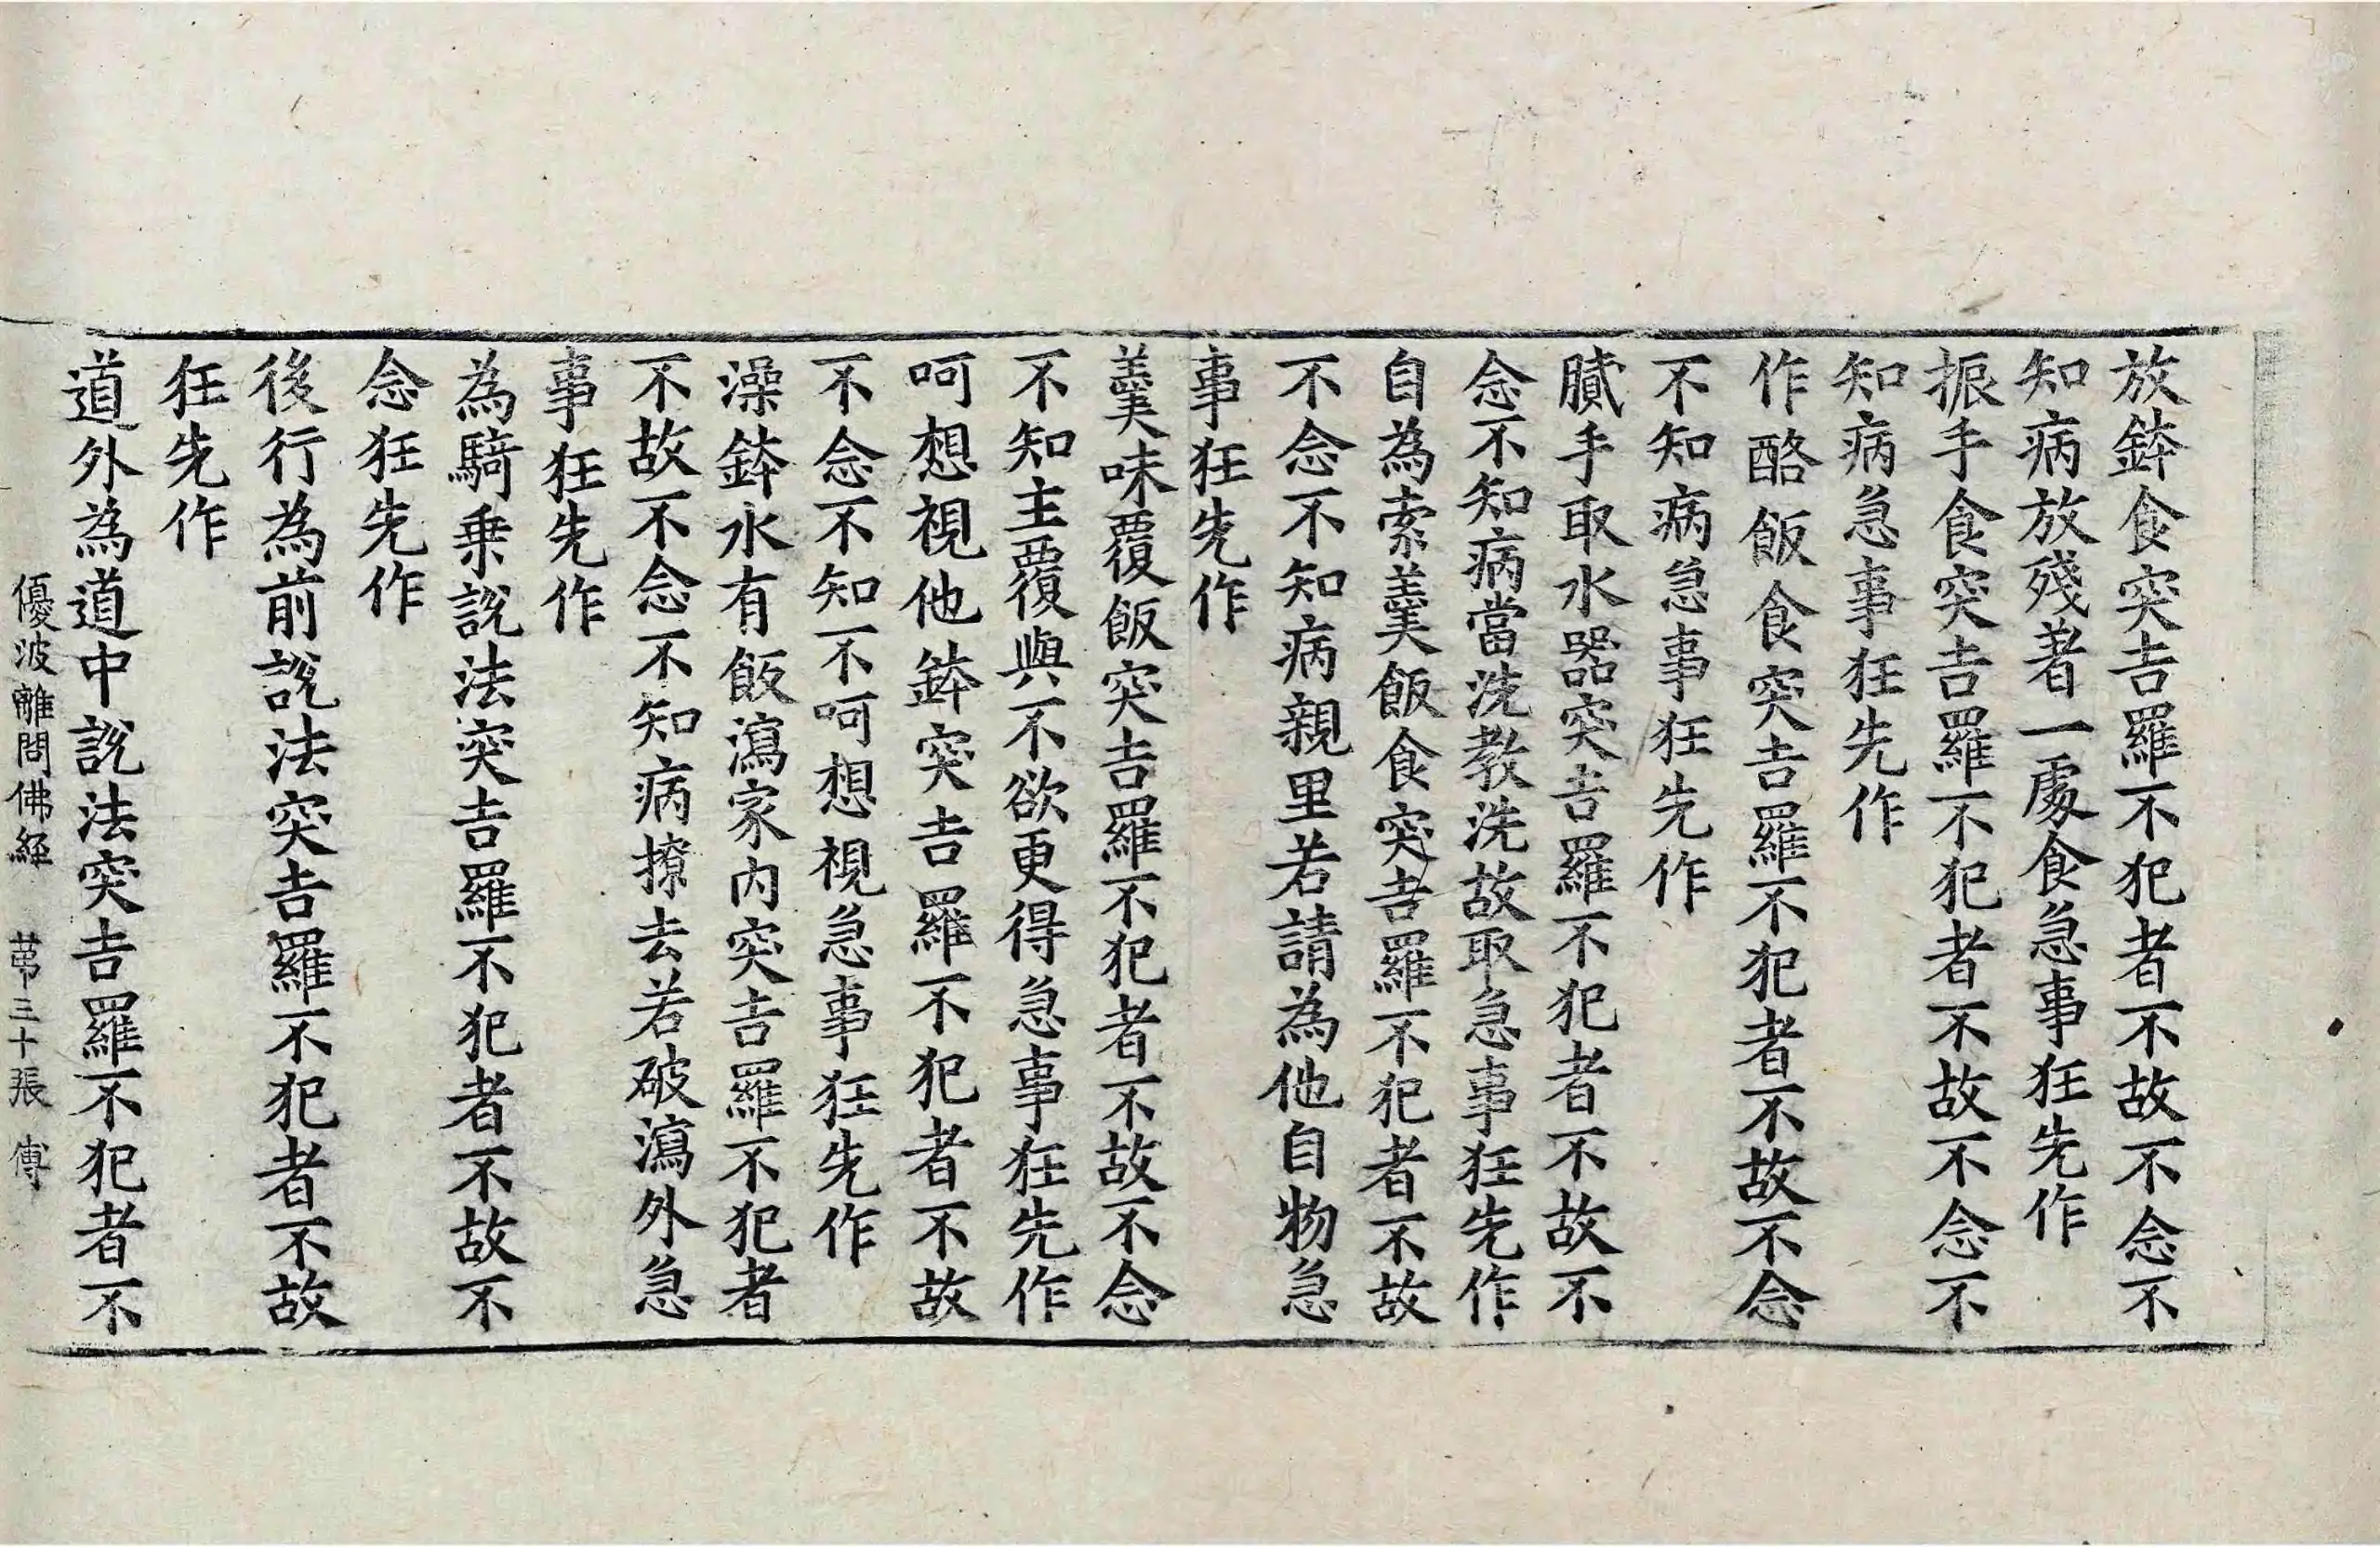 放鉢食突吉羅不犯者不故不念不
知病放殘著一處食急事狂先作
振手食突吉羅不犯者不故不念不
知病急事狂先作
作酪飯食突吉羅不犯者不故不念
不知病急事狂先作
膩手取水器突吉羅不犯者不故不
念不知病當洗教洗故取急事狂先作
自為索羹飯食突吉羅不犯者不故
不念不知病親里若請為他自物急
事狂先作
羹味覆飯突吉羅不犯者不故不念
不知主覆與不欲更得急事狂先作
呵想視他鉢突吉羅不犯者不故
不念不知不呵想視急事狂先作
澡鉢水有飯瀉家內突吉羅不犯者
不故不念不知病撩去若破瀉外急
事狂先作
為騎乗說法突吉羅不犯者不故不
念狂先作
後行為前說法突吉羅不犯者不故
狂先作
道外為道中說法突吉羅不犯者不
優波離問佛經 苐三十張 傅